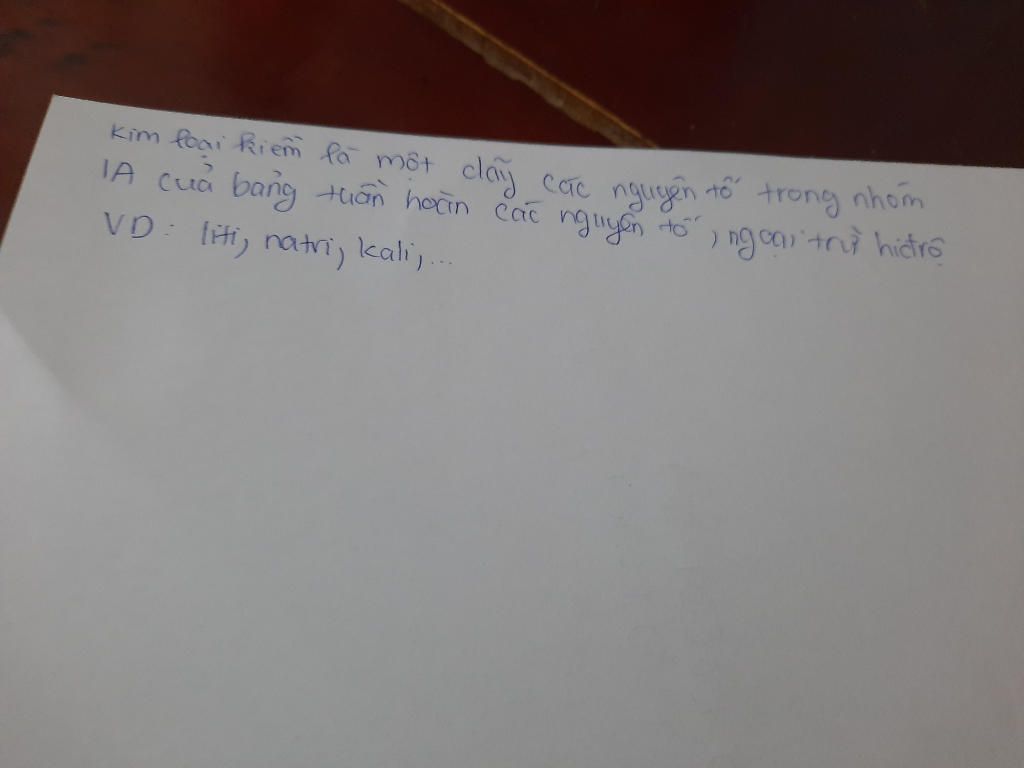 Kim loại kiềm là một dãy các nguyên tố trong nhóm
IA của bảng tuần hoàn các nguyên tố, ngoại trừ hiđrô
VD: liti, natri, kali,...